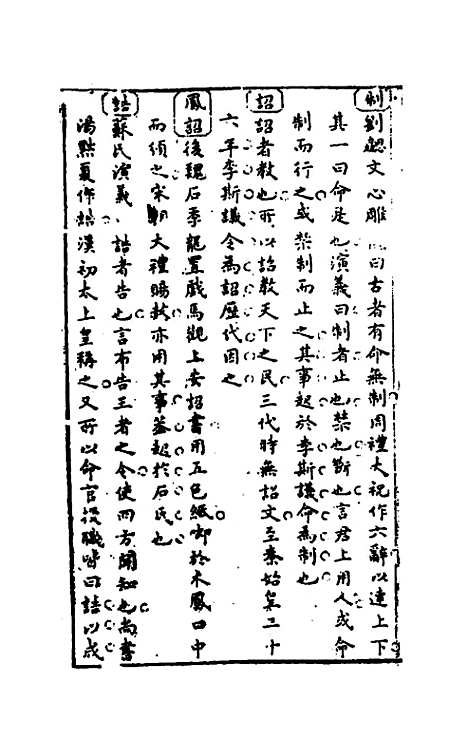 制劉勰文心雕 曰古者有命無制周禮大祝作六辭以達上下
其一曰命是也演義曰制者止也禁也斷也言君上用人或命
制而行之或禁制而止之其事起於李斯議命為制也
詔詔者教也所以詔教天下之民三代時無詔文至秦始皇二十
六年李斯議令為詔歷代因之
鳳詔後魏石季龍置戲馬觀上安詔書用五色紙啣於木鳳口中
而頒之宋朝大禮賜赦亦用其事蓋起於石氏也
誥蘇氏演義 誥者告也言布告王者之令使四方聞知也尚書
湯黜夏作誥漢初太上皇稱之又所以命官授職 曰誥以戒